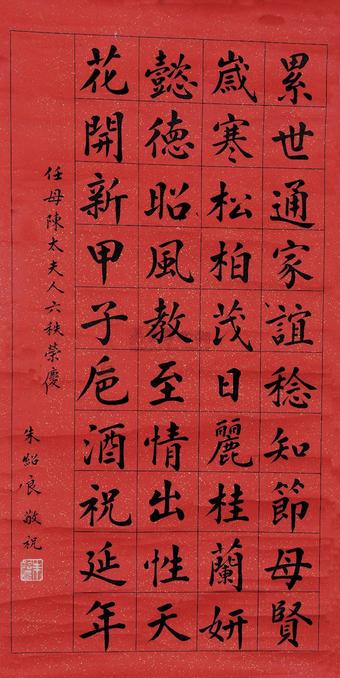 累世通家誼稔知節母賢
歲寒松柏茂日麗桂蘭妍
懿德昭風教至情出性天
花開新甲子卮酒祝延年
任母陳太夫人六秩榮慶
朱紹良敬祝